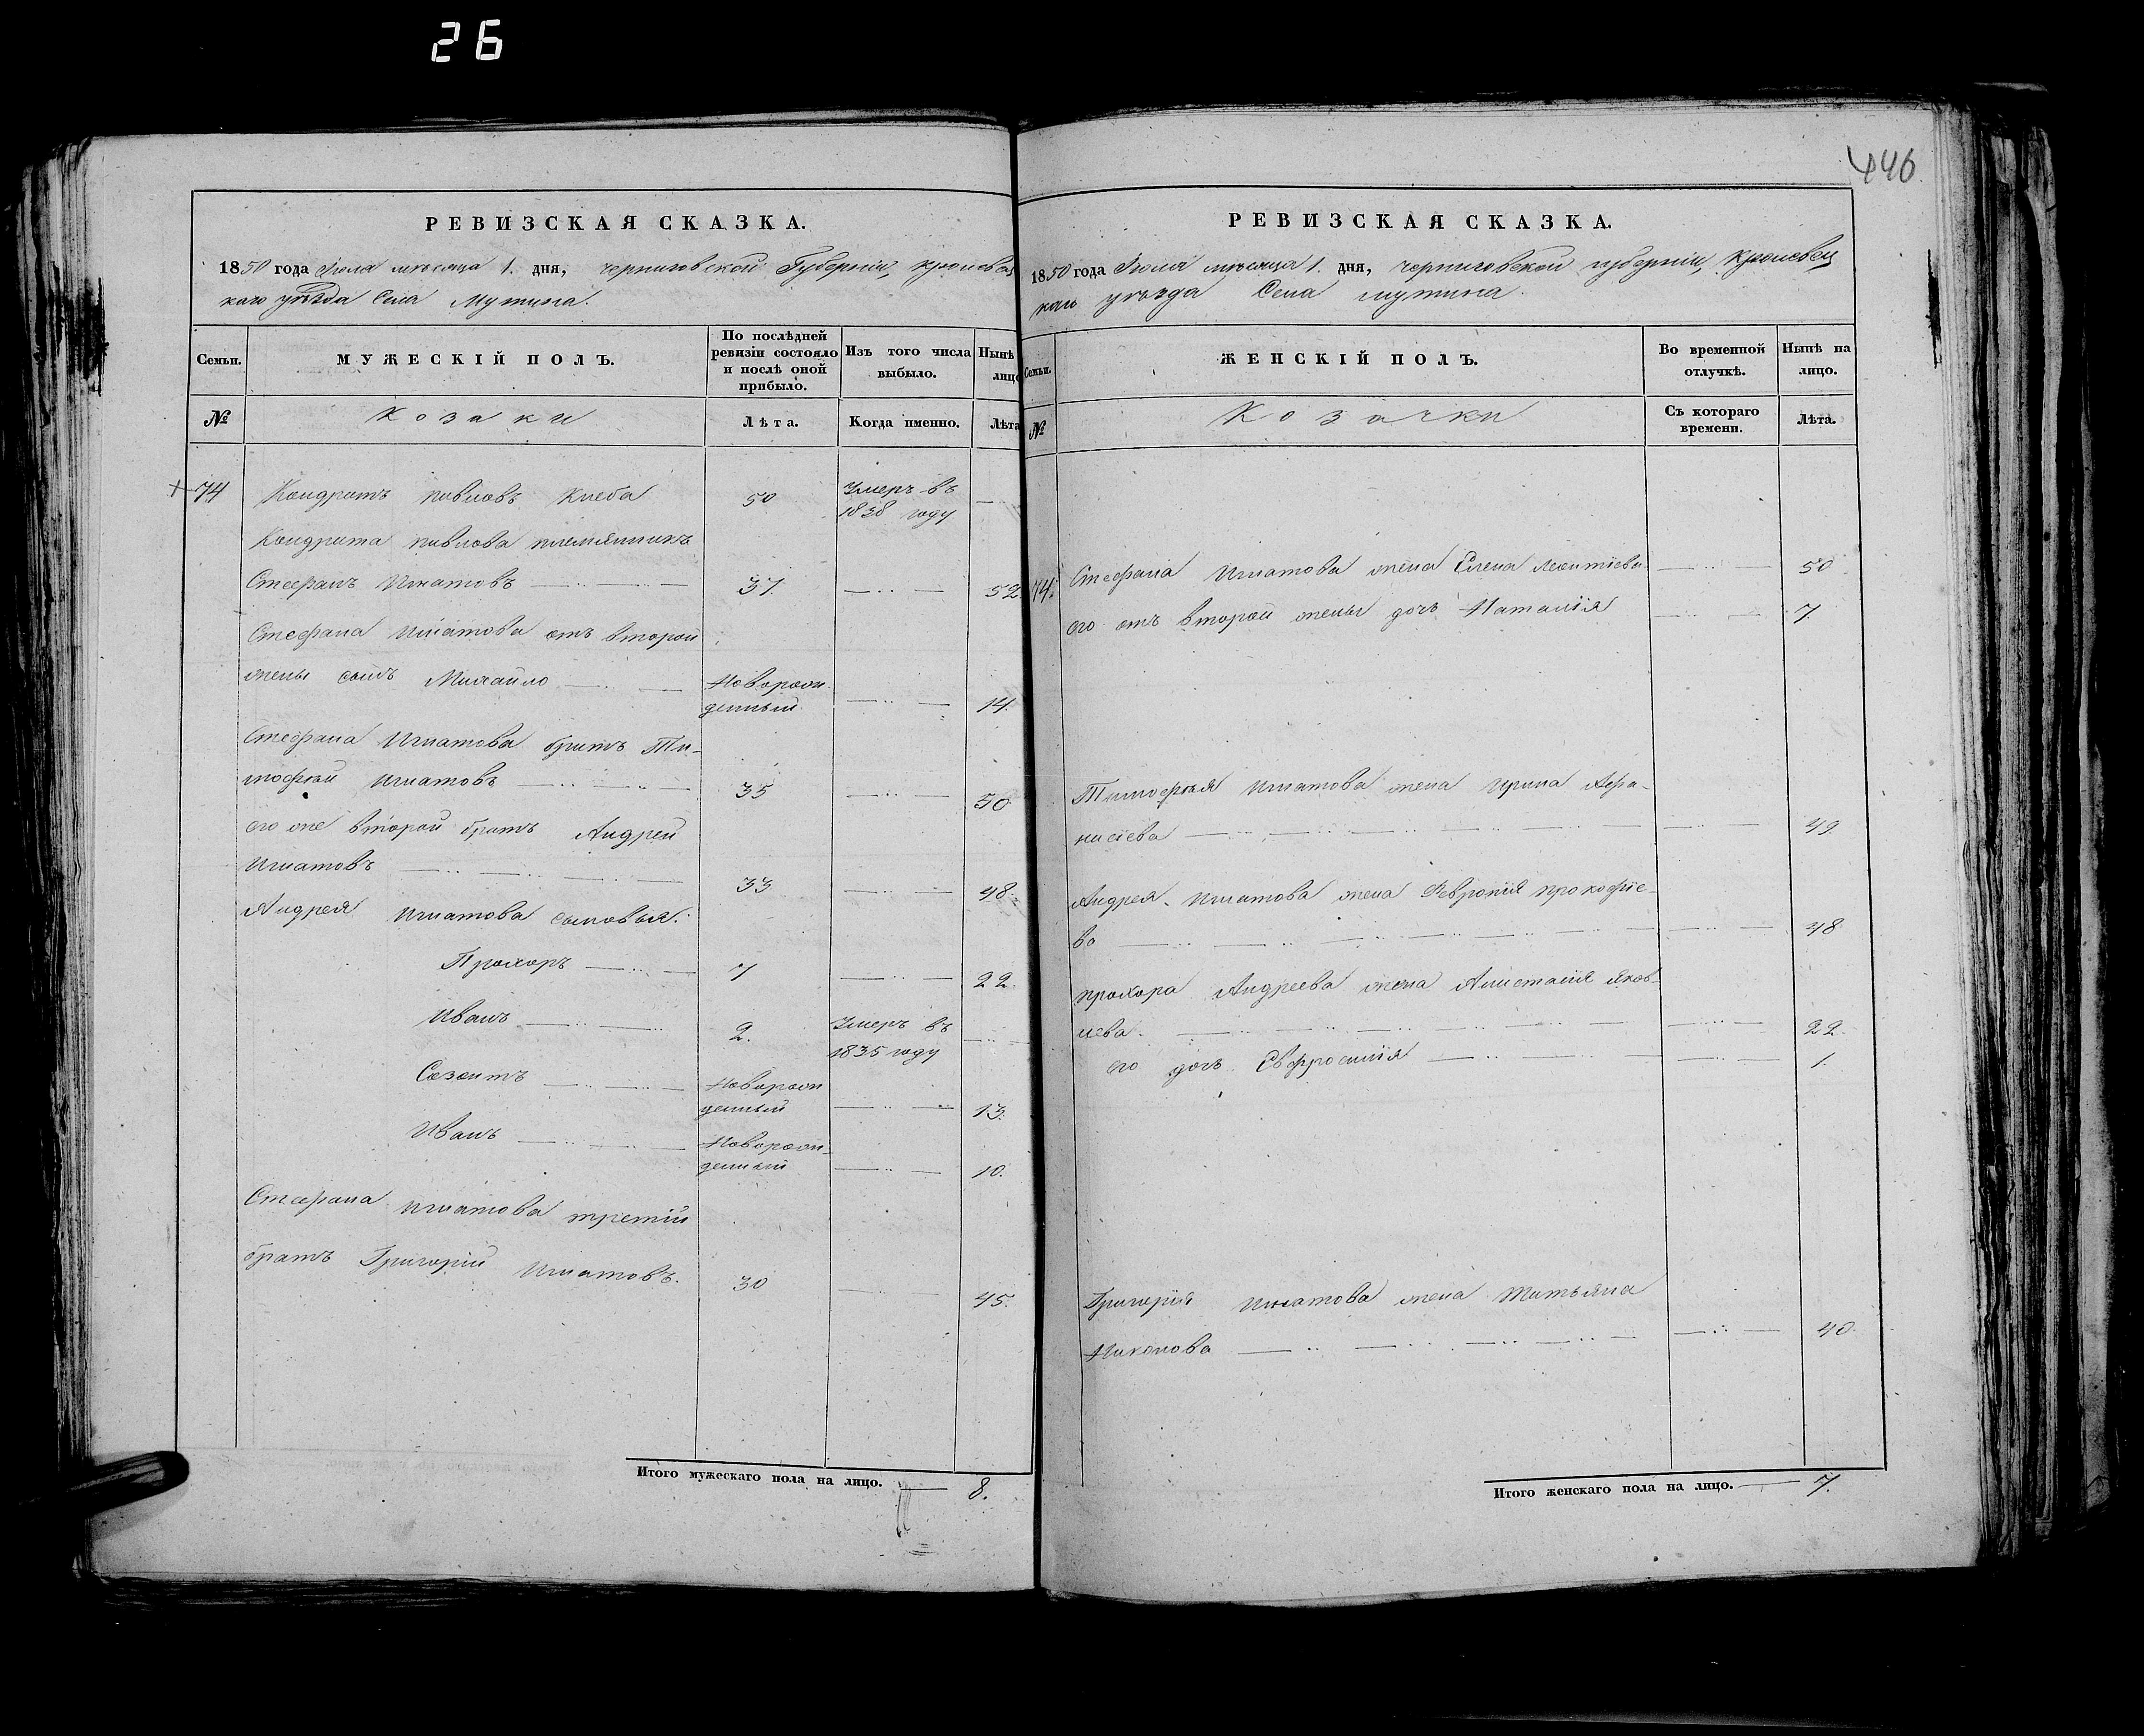 26
446
РЕВИЗСКАЯ СКАЗКА.
1850 года Іюля мѣсяца 1. дня, черниговской Губерніи, кролевец
каго уѣзда Села Мутина.
Семьи.
МУЖЕСКІЙ ПОЛЪ.
По послѣдней ревизіи состояло и послѣ оной прибыло.
Изъ того числа выбыло.
Нынѣ лицо
№
Козаки
Лѣта.
Когда именно.
Лѣта
74 Кондратъ павловъ 50 Умеръ въ
1838 году
Кондрата павлова племянникъ
Стефанъ Игнатовъ 37. 52.
Стефана Игнатова отъ второй
жены сынъ Михайло Новорож
денный 14.
Стефана Игнатова братъ Ти-
мофѣй Игнатовъ 35 50
его же второй братъ Андрей
Игнатовъ 33 48.
Андрея Игнатова сыновья:
Прохоръ 7 22.
Иванъ 2. Умеръ въ
1835 году
Созонтъ Новорож
денный 13.
Иванъ Новорож-
денный 10.
Стефана Игнатова третій
братъ Григорій Игнатовъ. 30 45.
Итого мужескаго пола на лицо. 8.
РЕВИЗСКАЯ СКАЗКА.
1850 года Іюля мѣсяца 1. дня, черниговской губерніи, кролевец
каго уѣзда Села мутина.
Семьи.
ЖЕНСКІЙ ПОЛЪ.
Во временной отлучкѣ.
Нынѣ на лицо.
№
Козачки
Съ котораго времени.
Лѣта.
74. Стефана Игнатова жена Елена Леонтіева 50
его отъ второй жены дочь Наталія 7.
Тимофѣя Игнатова жена Ирина Афа-
насіева 49
Андрея Игнатова жена Февронія прокофіе-
ва 48
прохора Андреева жена Анастасія Яков-
лева. 22.
его дочь Евфросинія 1.
Григорія Игнатова жена Татьяна
Никонова 40.
Итого женскаго пола на лицо. 7.